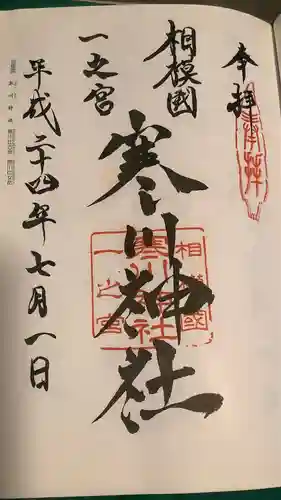 奉拝
奉拝
相模國
一之宮
寒川神社
相模國
寒川神社
一之宮
平成二十四年七月一日